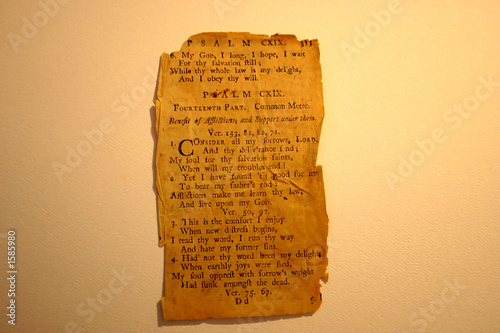 PSALM CXIX.
6. My God, I long, I hope, I wait
For thy salvation still;
While thy whole law is my delight,
And I obey thy will.
PSALM CXIX.
Fourteenth Part. Common Metre.
Benefit of Afflictions, and Support under them.
Ver. 153, 81, 82, 71.
1. CONSIDER all my sorrows, Lord,
And thy deliv'rance send;
My soul for thy salvation faints,
When will my troubles end!
2. Yet I have found 'tis good for me
To bear my father's rod;
Afflictions make me learn thy law,
And live upon my God.
Ver. 50, 92.
3. This is the comfort I enjoy
When new distress begins,
I read thy word, I run thy way
And hate my former sins.
4. Had not thy word been my delight
When earthly joys were fled,
My soul opprest with sorrow's weight
Had sunk amongst the dead.
Ver. 75. 67.
Dd 5.
Adobe Stock | #1585980